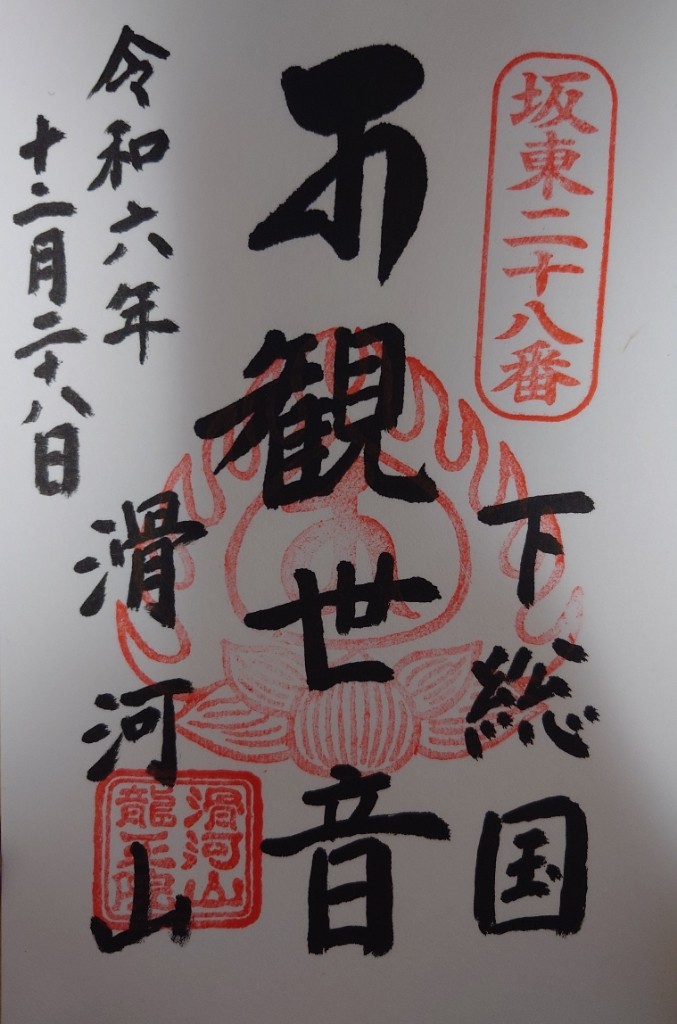 坂東二十八番
下総国
観世音
滑河山
滑河山
龍正院
令和六年
十二月二十八日